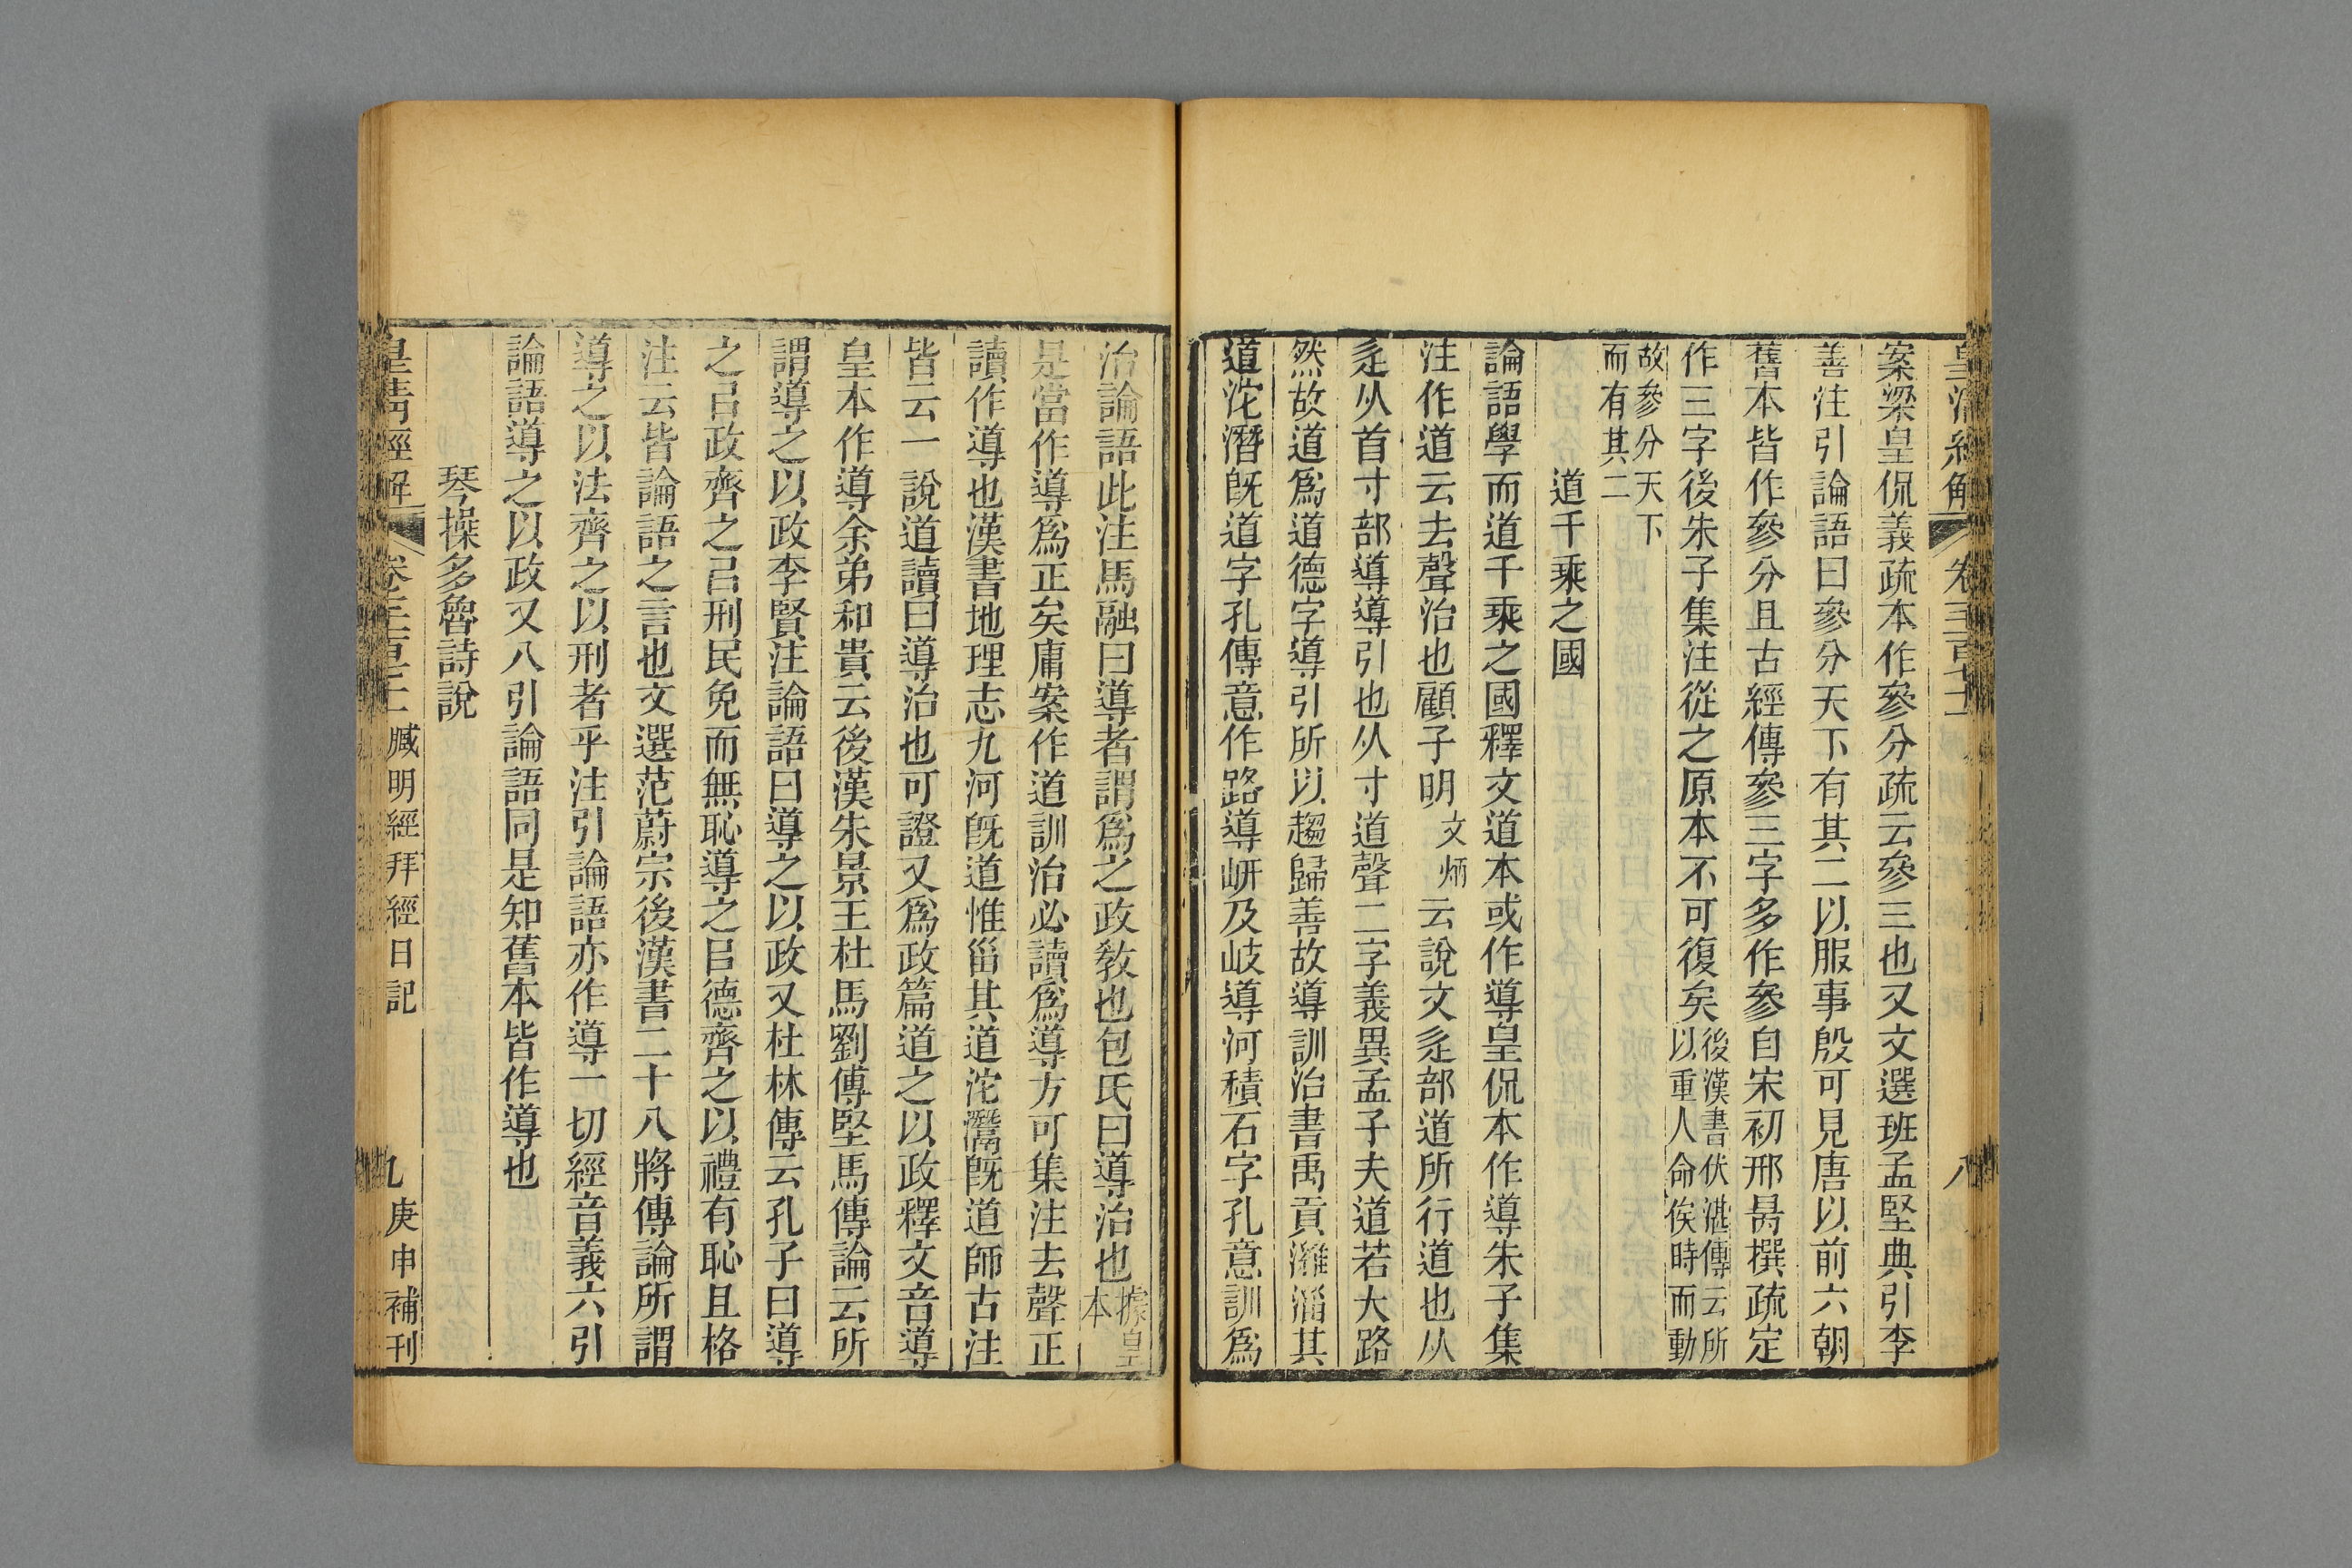 案梁皇侃義疏本作參分疏云參三也又文選班孟堅典引李
善注引論語曰參分天下有其二以服事殷可見唐以前六朝
舊本皆作參分且古經傳參三字多作參自宋初邢昺撰疏定
作三字後朱子集注從之原本不可復矣後漢書伏湛傳云所
以重人命俟時而動
故參分天下
而有其二
道千乘之國
論語學而道千乘之國釋文道本或作導皇侃本作導朱子集
注作道云去聲治也顧子明文炳云說文辵部道所行道也从
辵从首寸部導導引也从寸道聲二字義異孟子夫道若大路
然故道爲道德字導引所以趨歸善故導訓治書禹貢濰淄其
道沱潛旣道字孔傳意作路導岍及岐導河積石字孔意訓爲
治論語此注馬融曰導者謂爲之政教也包氏曰導治也據皇
本
是當作導爲正矣庸案作道訓治必讀爲導方可集注去聲正
讀作導也漢書地理志九河旣道惟甾其道沱灊旣道師古注
皆云一說道讀曰導治也可證又爲政篇道之以政釋文音導
皇本作導余弟和貴云後漢朱景王杜馬劉傅堅馬傳論云所
謂導之以政李賢注論語曰導之以政又杜林傳云孔子曰導
之㠯政齊之㠯刑民免而無恥導之㠯德齊之以禮有恥且格
注云皆論語之言也文選范蔚宗後漢書二十八將傳論所謂
導之以法齊之以刑者乎注引論語亦作導一切經音義六引
論語導之以政又八引論語同是知舊本皆作導也
琴操多魯詩說
皇清經解 臧明經拜經日記 九 庚申補刊